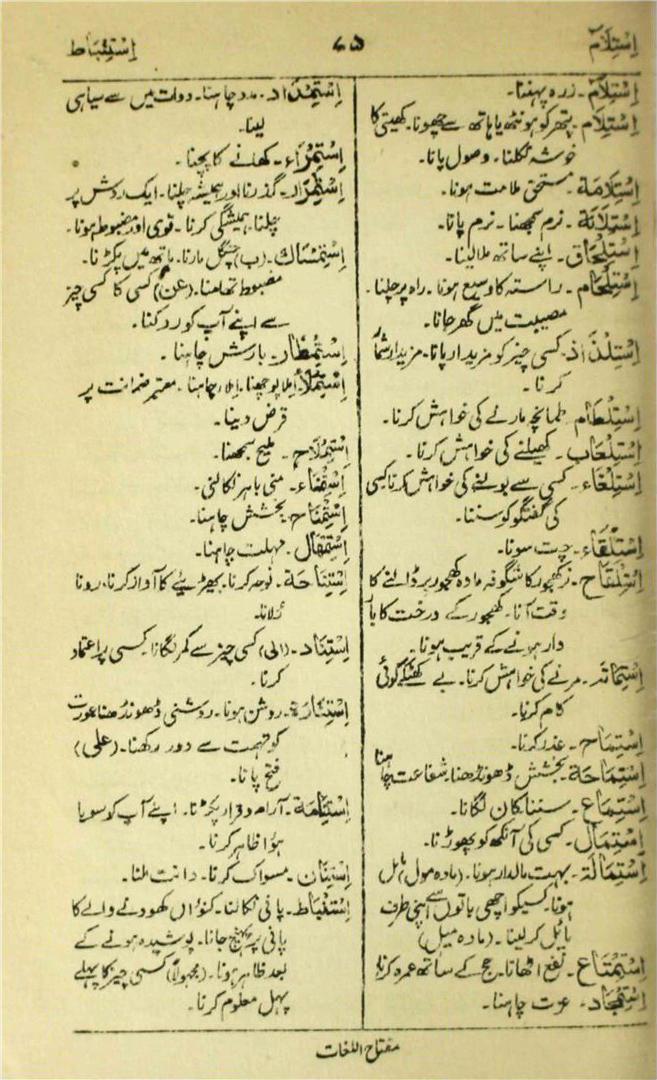 اِسْتِلْآم ۷۵ اِسْتِنْبَاط
اِسْتِلْآم۔ زرہ پہننا۔
اِسْتِلَام۔ پتھر کو ہونٹھ یا ہاتھ سے چھونا۔ کھیتی کا
خوشہ نکلنا۔ وصول پانا۔
اِسْتِلَامَة۔ مستحق ملامت ہونا۔
اِسْتِلَانَة۔ نرم سمجھنا۔ نرم پانا۔
اِسْتِلْحَاق۔ اپنے ساتھ ملا لینا۔
اِسْتِلْحَام۔ راستہ کا وسیع ہونا۔ راہ پر چلنا۔
مصیبت میں گھر جانا۔
اِسْتِلْذَاذ۔ کسی چیز کو مزیدار پانا۔ مزیدار شمار
کرنا۔
اِسْتِلْطَام۔ طمانچہ مارنے کی خواہش کرنا۔
اِسْتِلْعَاب۔ کھیلنے کی خواہش کرنا۔
اِسْتِلْغَاء۔ کسی سے بولنے کی خواہش کرنا کسی
کی گفتگو کو سننا۔
اِسْتِلْقَاء۔ چت سونا۔
اِسْتِلْقَاح۔ نر کھجور کا شگوفہ مادہ کھجور پر ڈالنے کا
وقت آنا۔ کھجور کے درخت کا بار
دار ہونے کے قریب ہونا۔
اِسْتِمَاتَہ۔ مرنے کی خواہش کرنا۔ بے کھٹکے کوئی
کام کرنا۔
اِسْتِمَاح۔ عذر کرنا۔
اِسْتِمَاحَة۔ بخشش ڈھونڈھنا شفاعت چاہنا
اِسْتِمَاع۔ سننا کان لگانا۔
اِسْتِمَال۔ کسی کی آنکھ کو پھوڑنا۔
اِسْتِمَالَة۔ بہت مالدار ہونا۔ (مادہ مول) مائل
ہونا۔ کسیکو اچھی باتوں سے اپنی طرف
مائل کر لینا۔ (مادہ میل)
اِسْتِمْتَاع۔ نفع اٹھانا۔ حج کے ساتھ عمرہ کرنا
اِسْتِمْجَاد۔ عزت چاہنا۔
اِسْتِمْدَاد۔ مدد چاہنا۔ دوات میں سے سیاہی
لینا۔
اِسْتِمْرَاء۔ کھانے کا پچنا۔
اِسْتِمْرَار۔ گذرنا اور ہمیشہ چلنا۔ ایک روش پر
چلنا۔ ہمیشگی کرنا۔ قوی اور مضبوط ہونا۔
اِسْتِمْسَاك۔ (ب) چنگل مارنا۔ ہاتھ میں پکڑنا۔
مضبوط تھامنا۔ (عن) کسی کا کسی چیز
سے اپنے آپ کو روکنا۔
اِسْتِمْطَار۔ بارش چاہنا۔
اِسْتِمْلَاء۔ املا پوچھنا۔ املا چاہنا۔ معتبر ضمانت پر
قرض دینا۔
اِسْتِمْلَاح۔ ملیح سمجھنا۔
اِسْتِمْنَاء۔ منی باہر نکالنی۔
اِسْتِمْنَاح۔ بخشش چاہنا۔
اِسْتِمْهَال۔ مہلت چاہنا۔
اِسْتِنَاحَة۔ نوحہ کرنا۔ بھیڑیئے کا آواز کرنا۔ رونا
رُلانا۔
اِسْتِنَاد۔ (الی) کسی چیز سے کمر لگانا۔ کسی پر اعتماد
کرنا۔
اِسْتِنَارَة۔ روشن ہونا۔ روشنی ڈھونڈھنا عورت
کو تہمت سے دور رکھنا۔ (علی)
فتح پانا۔
اِسْتِنَامَة۔ آرام و قرار پکڑنا۔ اپنے آپ کو سویا
ہؤا ظاہر کرنا۔
اِسْتِنَان۔ مسواک کرنا۔ دانت ملنا۔
اِسْتِنْبَاط۔ پانی نکالنا۔ کنوُاں کھودنے والے کا
پانی پر پہنچ جانا۔ پوشیدہ ہونے کے
بعد ظاہر ہونا۔ (مجہولاً) کسی چیز کا پہلے
پہل معلوم کرنا۔
مفتاح اللغات